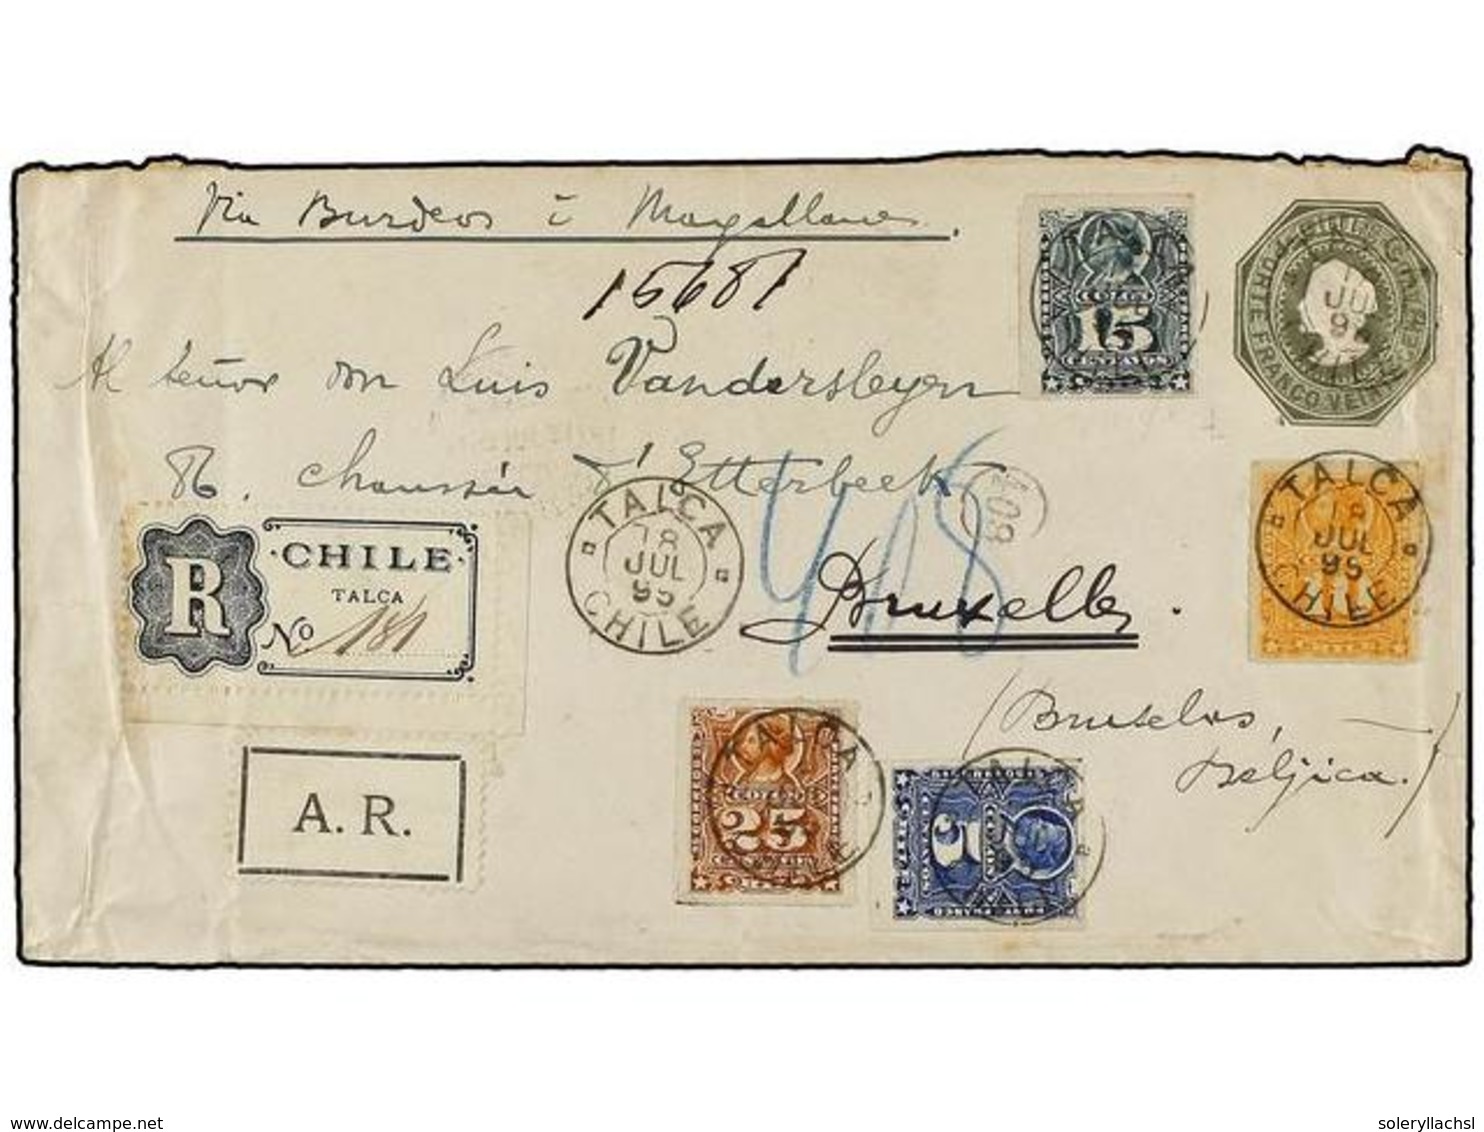 Via Burdeos ó Magallanes.
15681
COLON
15
CENTAVOS
PORTE FRANCO VEINTE
JUL
95
Al señor don Luis Vandersleyen
86. Chaussée d'Etterbeek
408
TALCA
18
JUL
95
CHILE
TALCA
18
JUL
95
CHILE
R
CHILE
TALCA
No 181
Bruxelles.
(Bruselas,
Béljica.)
A. R.
TALCA
COLON
25
5
delcampe.net
soleryllachsl